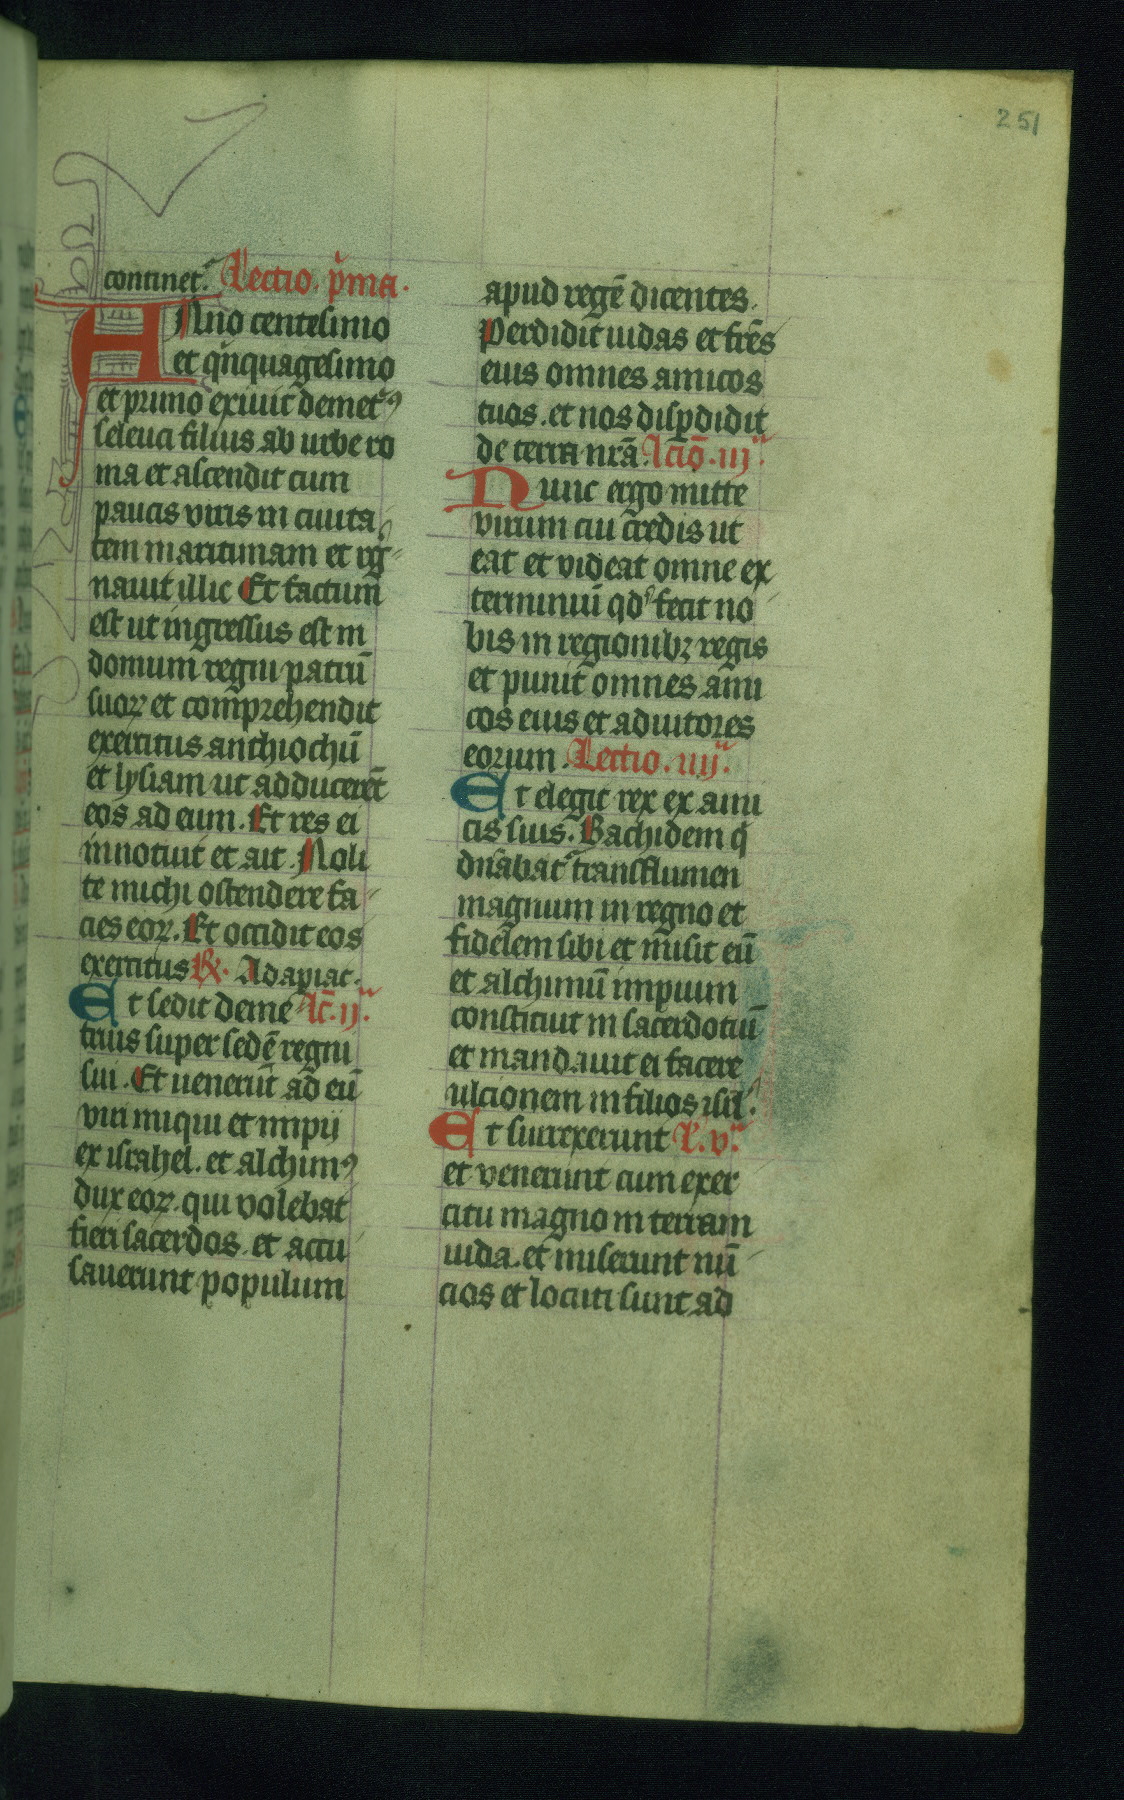 251
continet᷑. Lectio. p̾ma.
ANno centesimo
et qͥnquagesimo
et primo exiuit demetᷣꝯ
seleuci filius ab urbe ro
ma et ascendit cum
paucis viris in ciuita
tem maritimam et rg̅
nauit illic Et factum
est ut ingressus est in
domum regni patru̅
suoꝝ et comprehendit
exercitus anthiochu̅
et lysiam ut adducere̅t
eos ad eum. Et res ei
innotuit et ait. Noli
te michi ostendere fa
cies eoꝝ. Et occidit eos
exercitus ℟. Adapiat.
Et sedit deme Lc̅. ij.ᵃ
trius super sede̅ regni
sui. Et ueneru̅t ad eu̅
viri iniqui et impij
ex israhel. et alchimꝯ
dux eoꝝ. qui volebat
fieri sacerdos. et accu
sauerunt populum
apud rege̅ dicentes.
Perdidit iudas et fr̅es
eius omnes amicos
tuos. et nos disꝑdidit
de terra nr̅a. Lcio̅. iijᵃ.
Nunc ergo mitte
virum cui credis ut
eat et videat omne ex
terminiu̅ qd᷑ fecit no
bis in regionibꝫ regis
et puniat omnes ami
cos eius et adiutores
eorum. Lectio. iiijᵃ.
Et elegit rex ex ami
cis suis. Bachidem qͥ
dn̅abat᷑ transflumen
magnum in regno et
fidelem sibi et misit eu̅
et alchimu̅ impium
constituit in sacerdotiu̅
et mandauit ei facere
ulcionem in filios isrl̅.
Et surrexerunt L̅. vᵃ.
et venerunt cum exer
citu magno in terram
iuda. et miserunt nu̅
cios et locuti sunt ad